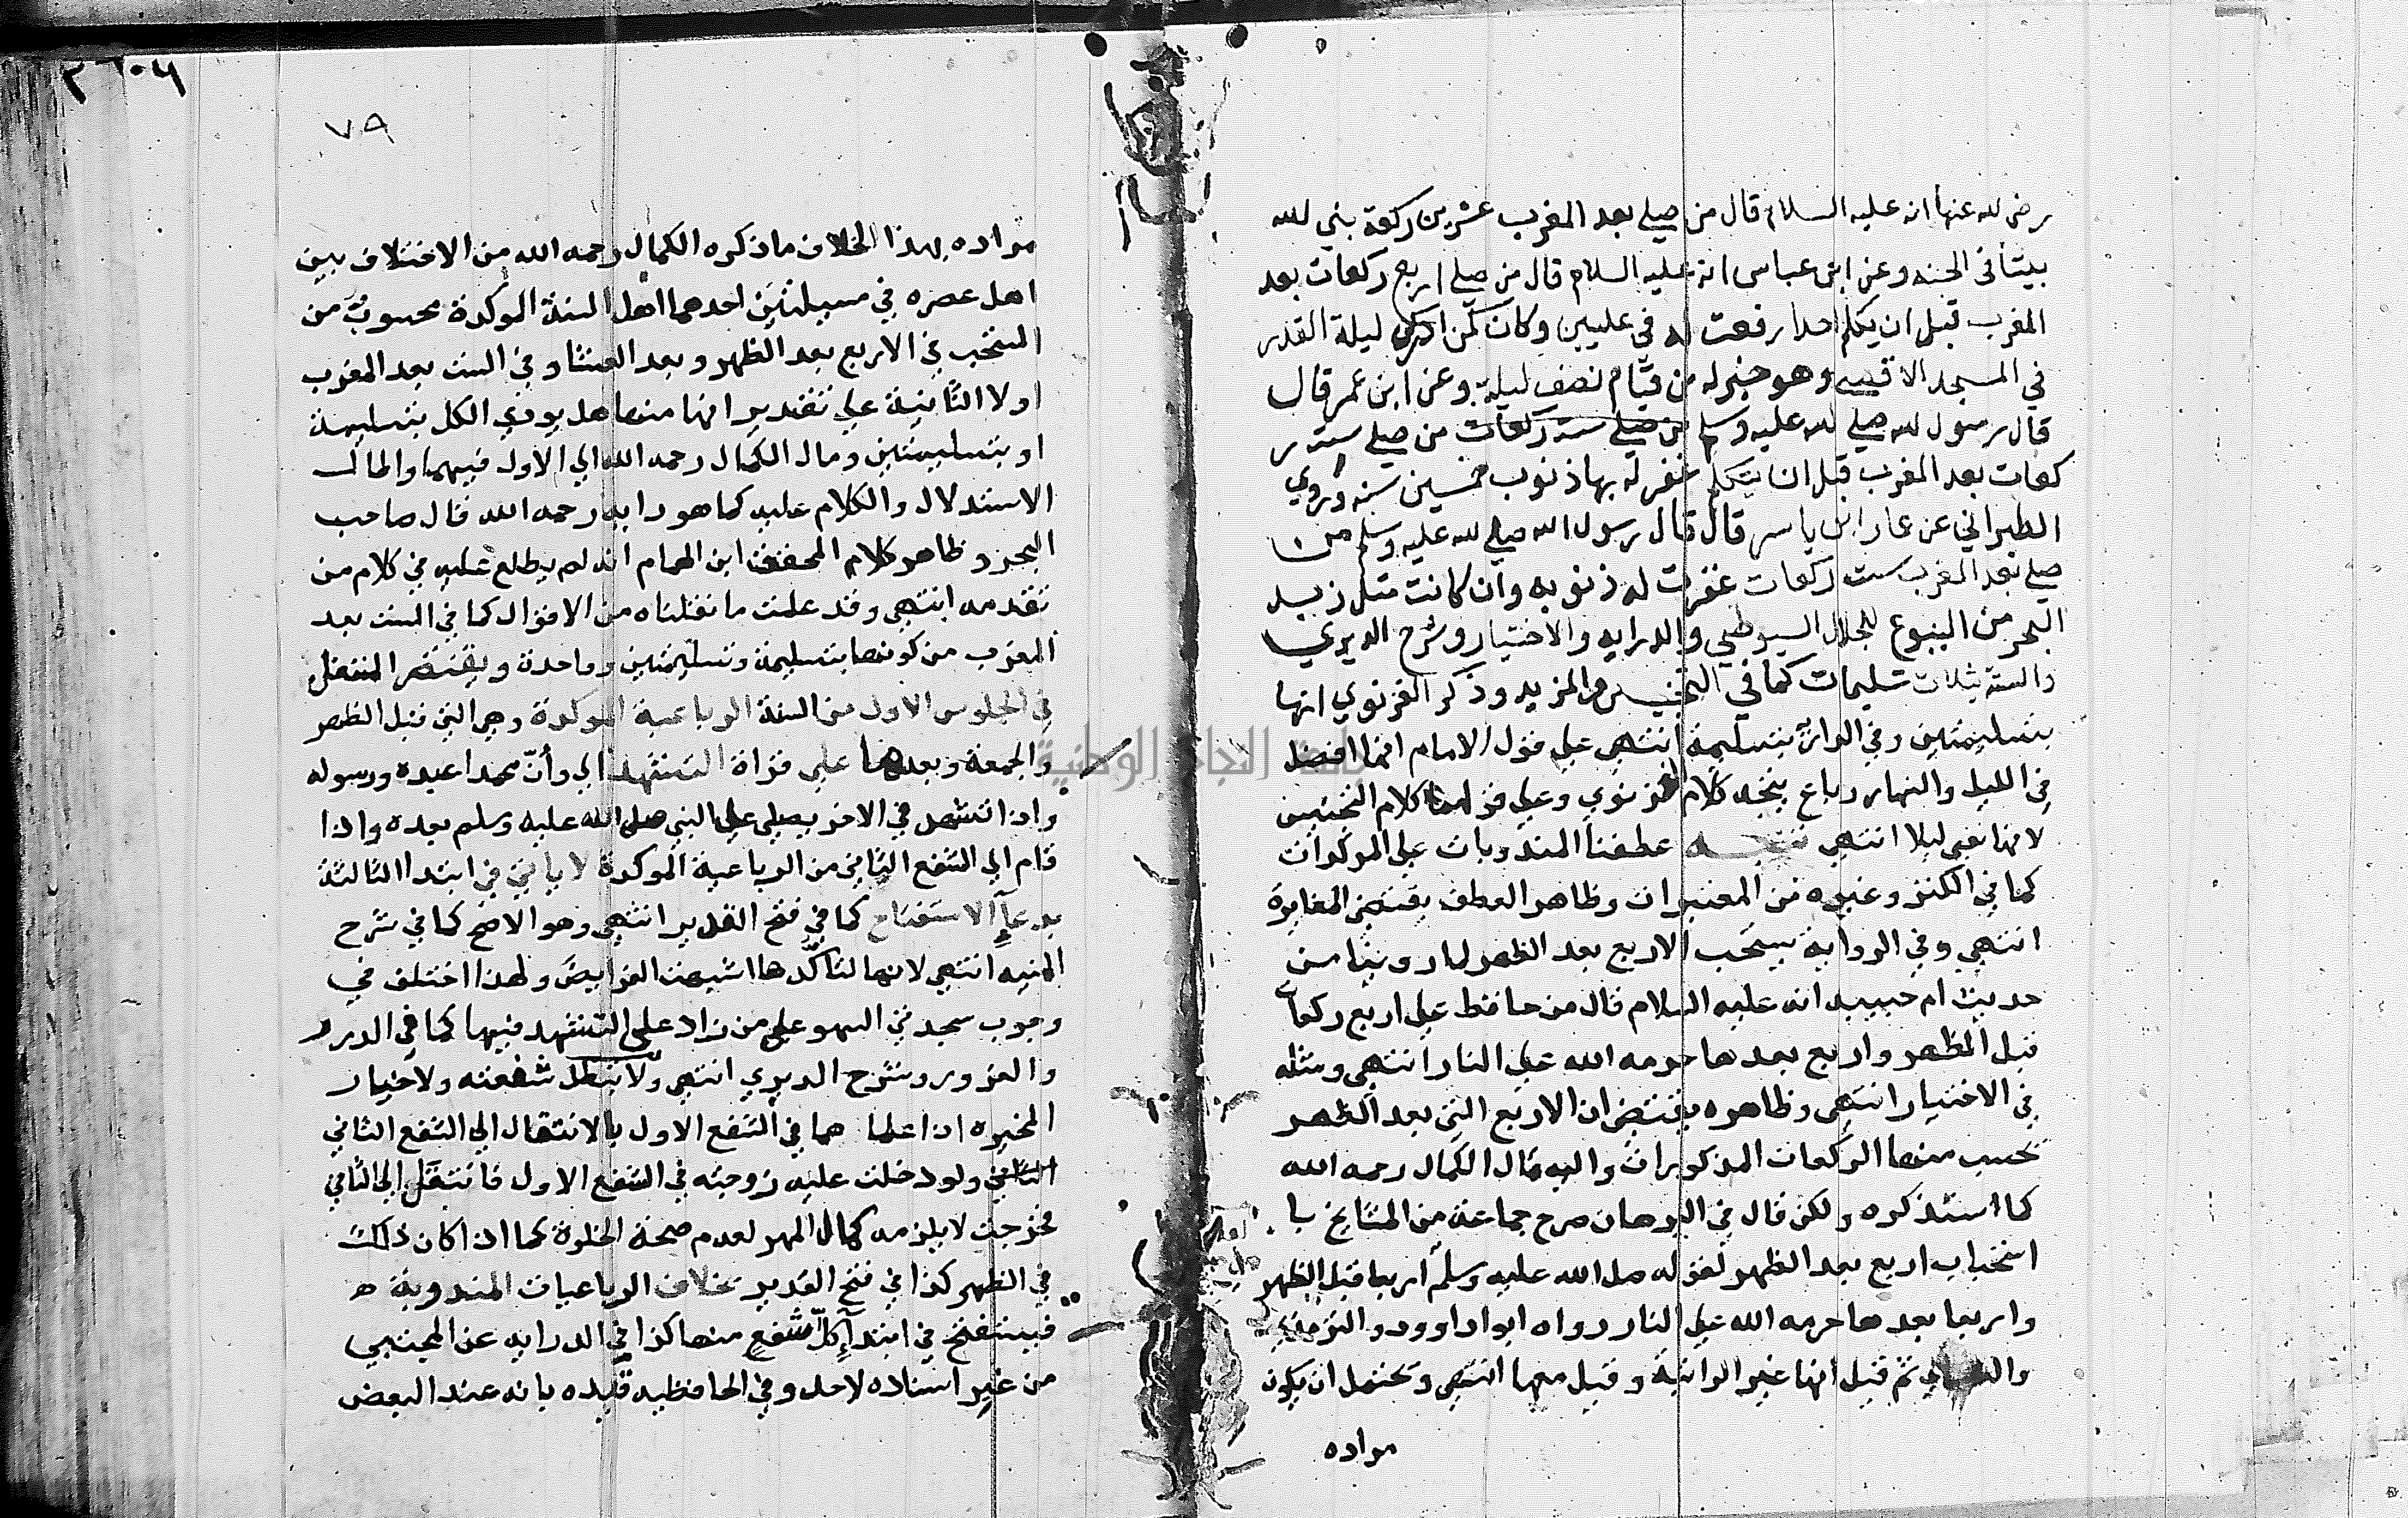 رضي لله عنها انه عليه السلام قال من صلي بعد المغرب عشرين ركعة بني لله
بيتا في الجنه وعن ابن عباس انه عليه السلام قال من صلي اربع ركعات بعد
المغرب قبل ان يكلم احدا رفعت له في عليين وكان كمن ادرك ليلة القدر
في المسجد الاقصي وهو خير له من قيام نصف ليلة وعن ابن عمر قال
قال رسول لله صلي لله عليه وسلم من صلي ستة ركعات من صلي ست ر
كعات بعد المغرب قبل ان يتكلم غفر له بها ذنوب خمسين سنه وروي
الطبراني عن عمار ابن ياسر قال قال رسول الله صلي لله عليه وسلم من
صلي بعد المغرب ست ركعات غفرت له ذنوبه وان كانت مثل زبد
البحر من الينبوع للجلال السيوطي والدرايه والاختيار وشرح الديري
والستة بثلاث تسليمات كما في التجنيس والمزيد وذكر الغزنوي انها
بتسليمتين وفي بتسليمة انتهي علي قول الامام انها افضل
في الليل والنهار رباع يتجه كلام الغزنوي وعلي قولهما كلام التجنيس
لانها نفي ليلا انتهي عطفنا المندوبات علي الموكدات
كما في الكنز وغيره من المعتبرات وظاهر العطف يقتضي المغايرة
انتهي وفي الرواية يستحب الاربع بعد الظهر لما روينا من
حديث ام حبيبه انه عليه السلام قال من حافظ علي اربع ركعات
قبل الظهر واربع بعدها حرمه الله علي النار انتهي ومثله
في الاختيار انتهي وظاهره يقتضي ان الاربع التي بعد الظهر
تحسب منها الركعات المذكورات واليه مال الكمال رحمه الله
كما استذكره ولكن قال في البرهان صرح جماعة من المشايخ با
استحباب اربع بعد الظهر لقوله صلي الله عليه وسلم اربعا قبل الظهر
واربعا بعدها حرمه الله علي النار رواه ابوا داوود والترمذي
ثم قيل انها غير الراتبة وقيل منها انتهي ويحتمل ان يكون
مراده
٧٩
مراده بهذا الخلاف ما ذكره الكمال رحمه الله من الاختلاف بين
اهل عصره في مسيلتين احدهما اهل السنة الموكدة محسوب من
المستحب في الاربع بعد الظهر وبعد العشا وفي الست بعد المغرب
اولا الثانية علي تقدير انها منها هل يودي الكل بتسليمة
او بتسليمتين ومال الكمال رحمه الله الي الاول فيهما واطال
الاستدلال والكلام عليه كما هو دابه رحمه الله قال صاحب
البحر وظاهر كلام المحقق ابن الهمام انه لم يطلع عليه في كلام من
تقدمه انتهي وقد علمت ما نقلناه من الاقوال كما في الست بعد
المغرب من كونها بتسليمة وتسليمتين وواحدة ويقتصر المتنفل
في الجلوس الاول من السنة الرباعية الموكدة وهي التي قبل الظهر
والجمعة وبعدها علي قراة التشهد الي وأنّ محمدا عبده ورسوله
واذا تشهد في الاخر يصلي علي النبي صلي الله عليه وسلم بعده واذا
قام الي الشفع الثاني من الرباعية الموكدة لا ياتي في ابتدا الثالثة
بدعآ الاستفتاح كما في فتح القدير انتهي وهو الاصح كما في شرح
المنيه انتهي لانها لتاكدها اشبهت الفرايض ولهذا اختلف في
وجوب سجدتي السهو علي من زاد علي التشهد فيها كما في الدرر
والغرور وشرح الديري انتهي ولا تبطل شفعته ولا خيار
المخيره اذا علما هما في الشفع الاول بالانتقال الي الشفع الثاني
الثاني ولو دخلت عليه زوجته في الشفع الاول فانتقل الي الثاني
فخرجت لا يلزمه كمال المهر لعدم صحة الخلوة كما اذا كان ذلك
في الظهر كذا في فتح القدير بخلاف الرباعيات المندوبة
فيستفتح في ابتدآ كلّ شفع منها كذا في الدرايه عن المجتبي
من غير اسناده لاحد وفي الحافظيه قيده بانه عند البعض